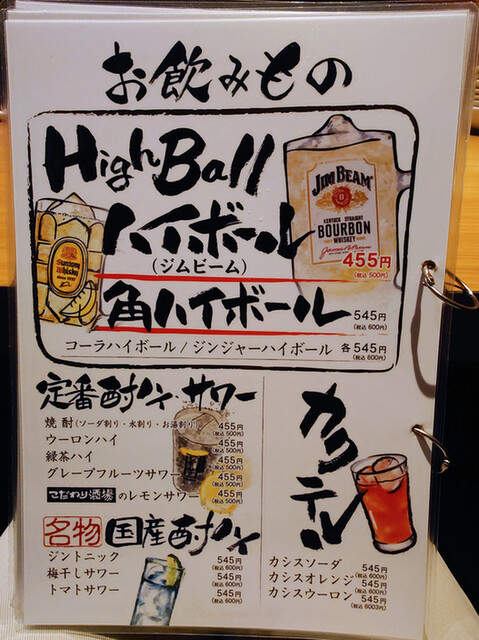 お飲みもの
High Ball
ハイボール
(ジムビーム)
455円
(税込 500円)
JIM BEAM
B
KENTUCKY STRAIGHT
BOURBON
WHISKEY
角ハイボール 545円
(税込 600円)
コーラハイボール / ジンジャーハイボール 各545円
(税込 600円)
定番酎ハイ・サワー
焼酎(ソーダ割り・水割り・お湯割り) 455円
(税込 500円)
ウーロンハイ 455円
(税込 500円)
緑茶ハイ 455円
(税込 500円)
グレープフルーツサワー 455円
(税込 500円)
こだわり酒場のレモンサワー 455円
(税込 500円)
名物 国産酎ハイ
ジントニック 545円
(税込 600円)
梅干しサワー 545円
(税込 600円)
トマトサワー 545円
(税込 600円)
カクテル
カシスソーダ 545円
(税込 600円)
カシスオレンジ 545円
(税込 600円)
カシスウーロン 545円
(税込 6003円)